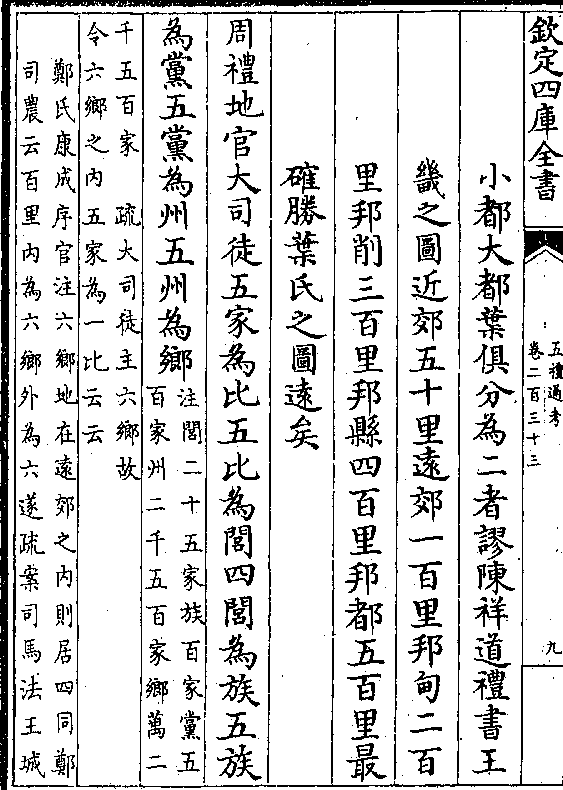 欽定四庫全書
五禮通考
卷二百三十三
九
小都大都葉俱分為二者謬陳祥道禮書王
畿之圖近郊五十里遠郊一百里邦甸二百
里邦削三百里邦縣四百里邦都五百里最
確勝葉氏之圖遠矣
周禮地官大司徒五家為比五比為閭四閭為族五族
為黨五黨為州五州為鄉
注閭二十五家族百家黨五
百家州二千五百家鄉萬二
千五百家 疏大司徒主六鄉故
令六鄉之内五家為一比云云
鄭氏康成序官注六鄉地在遠郊之内則居四同鄭
司農云百里内為六鄉外為六遂疏案司馬法王城